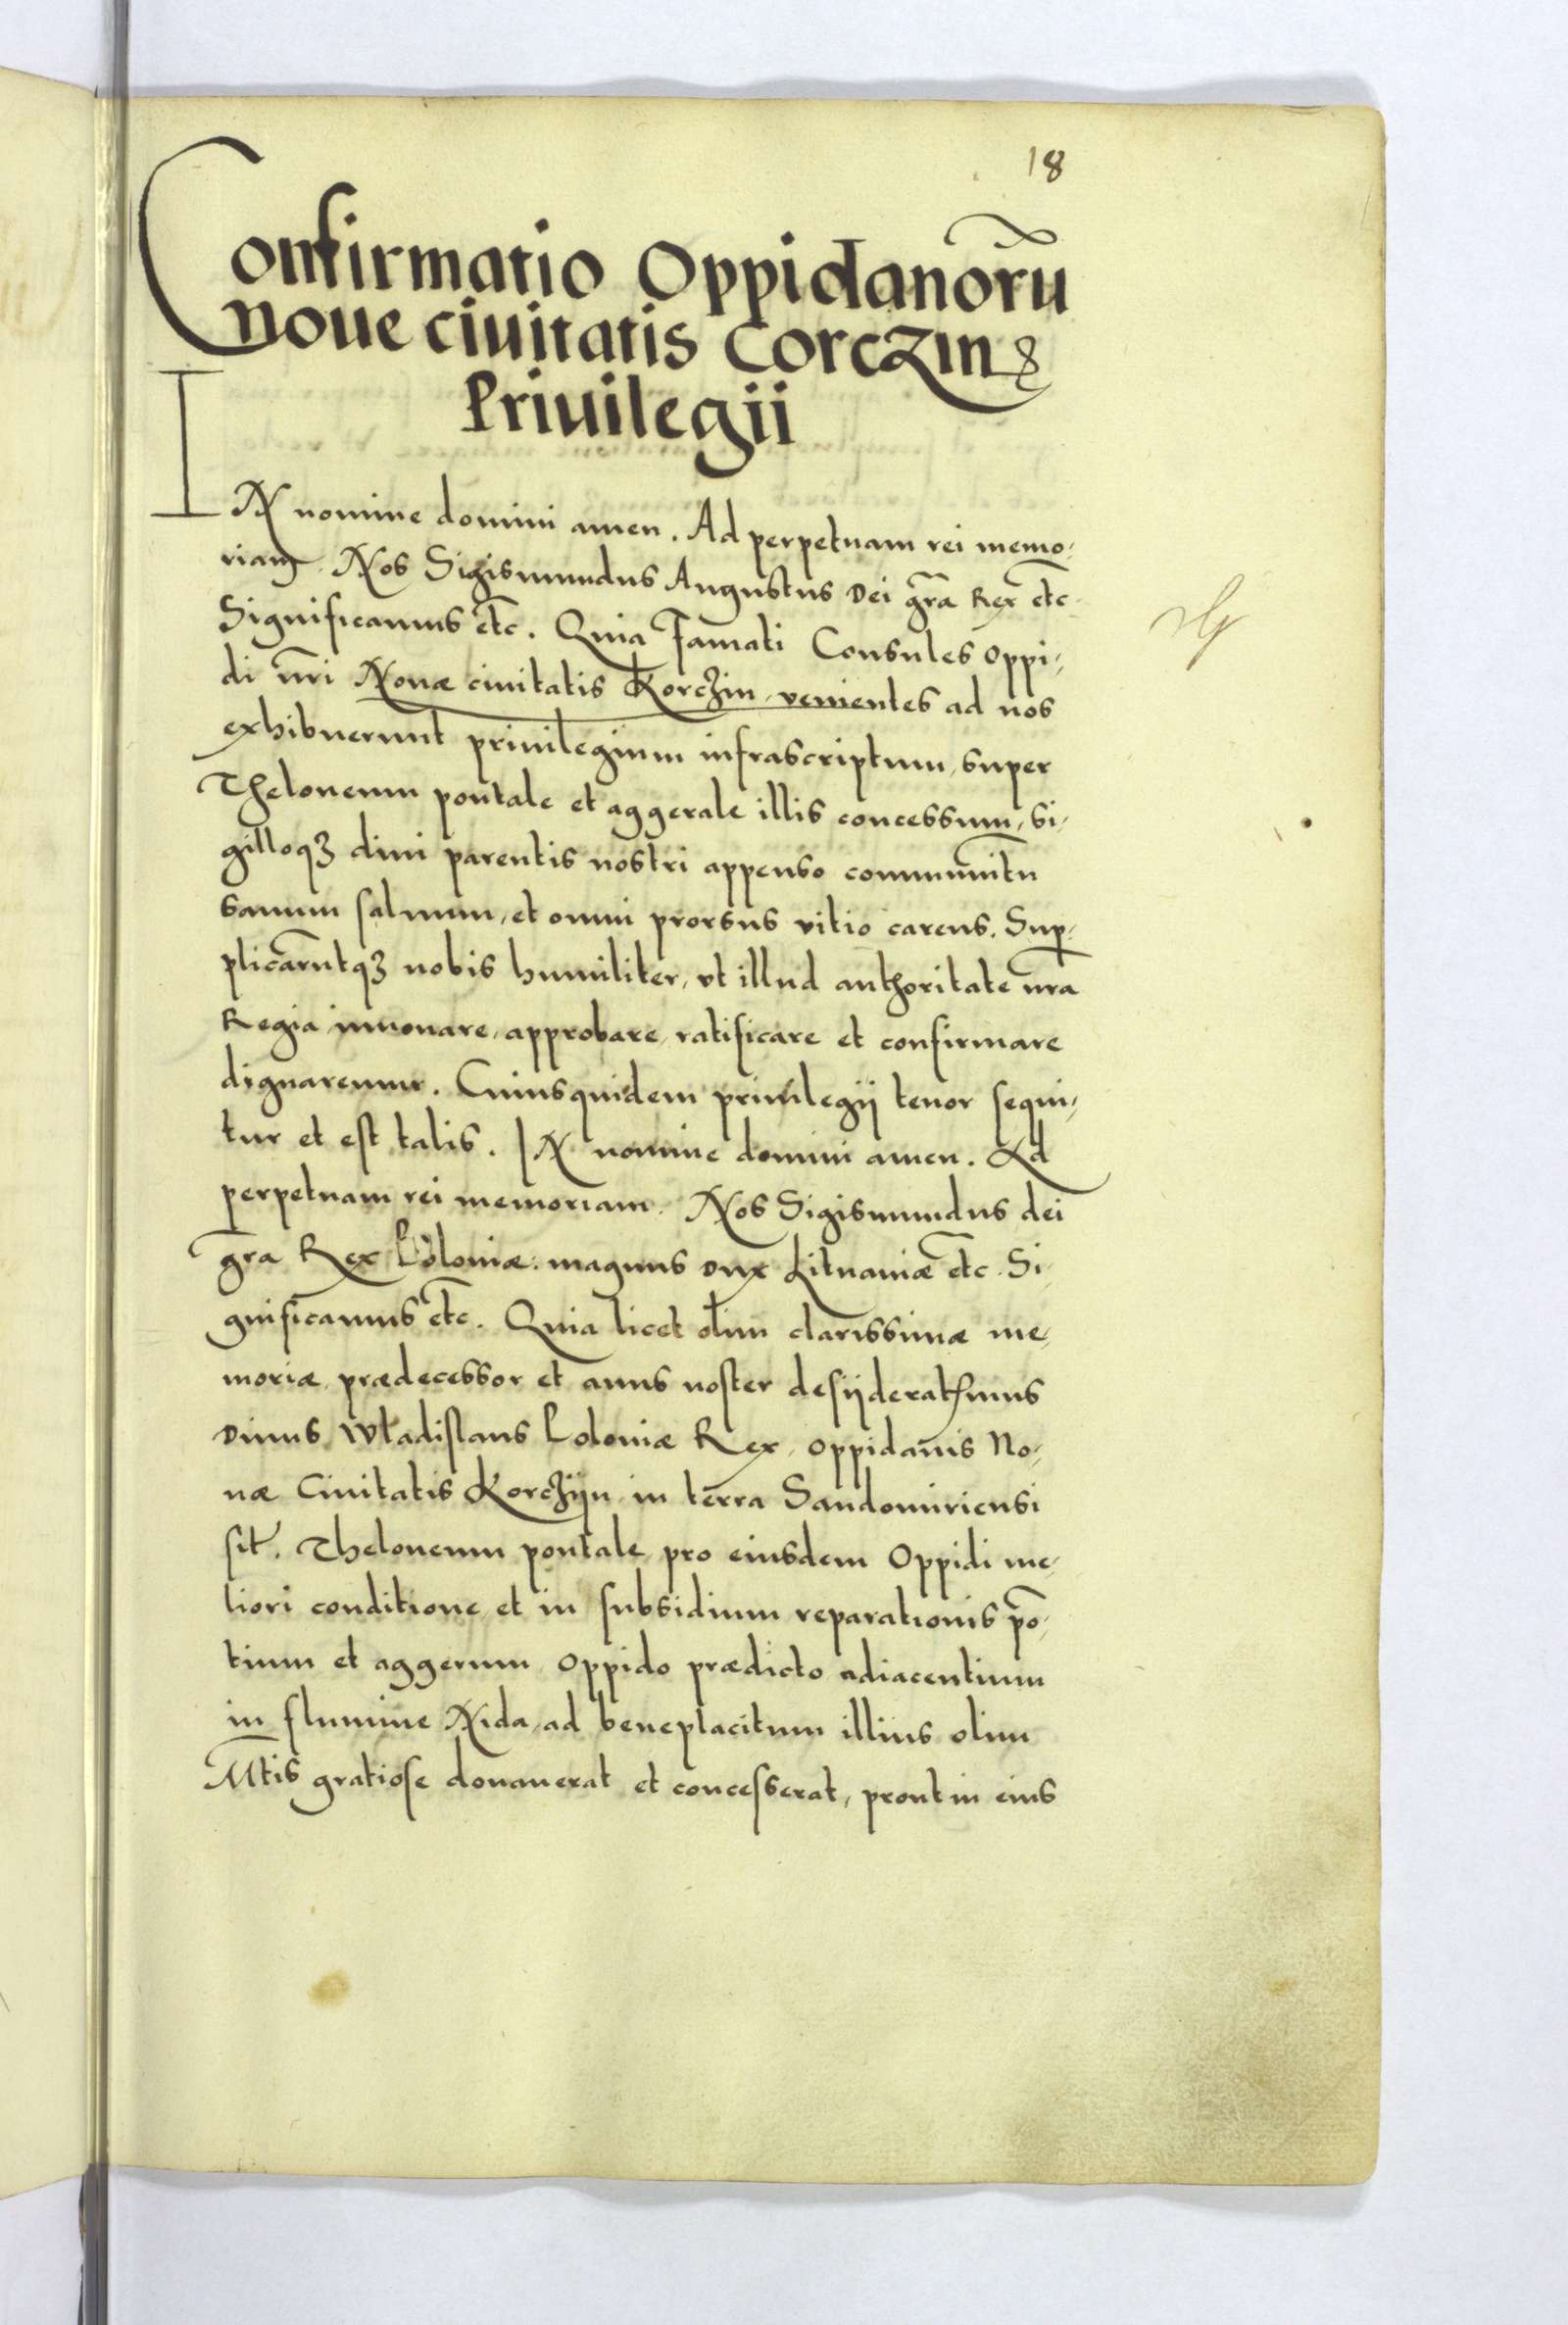 18
Confirmatio Oppidanorũ
noue ciuitatis Corczin
Priuilegii
IN nomine domini amen. Ad perpetuam rei memo-
riam. Nos Sigismundus Augustus Dei gr̃a Rex etc̃
Significamus etc̃. Quia Famati Consules Oppi-
di nr̃i Nouæ ciuitatis Korczin, venientes ad nos
exhibuerunt priuilegium infrascriptum, super
Theloneum pontale et aggerale illis concessum, si-
gilloqȝ diui parentis nostri appenso communitũ
sanum saluum, et omni prorsus vitio carens. Sup-
plicarũtqȝ nobis humiliter, vt illud authoritate nr̃a
Regia innouare, approbare, ratificare et confirmare
dignaremur. Cuiusquidem priuilegij tenor sequi-
tur et est talis. IN nomine domini amen. Ad
perpetuam rei memoriam. Nos Sigismundus dei
gr̃a Rex Poloniæ. magnus Dux Lituaniæ etc̃. Si-
gnificamus etc̃. Quia licet olim clarissimæ me-
moriæ prædecessor et auus noster desyderatssimus
Diuus Wladislaus Poloniæ Rex, oppidanis No-
uæ Ciuitatis Korczÿn in terra Sandomiriensi
sit̃. Theloneum pontale pro eiusdem Oppidi me-
liori conditione et in subsidium reparationis põ-
tium et aggerum oppido prædicto adiacentium
in flumine Nida, ad beneplacitum illius olim
Mt̃is gratiose donauerat et concesserat, prout in eius